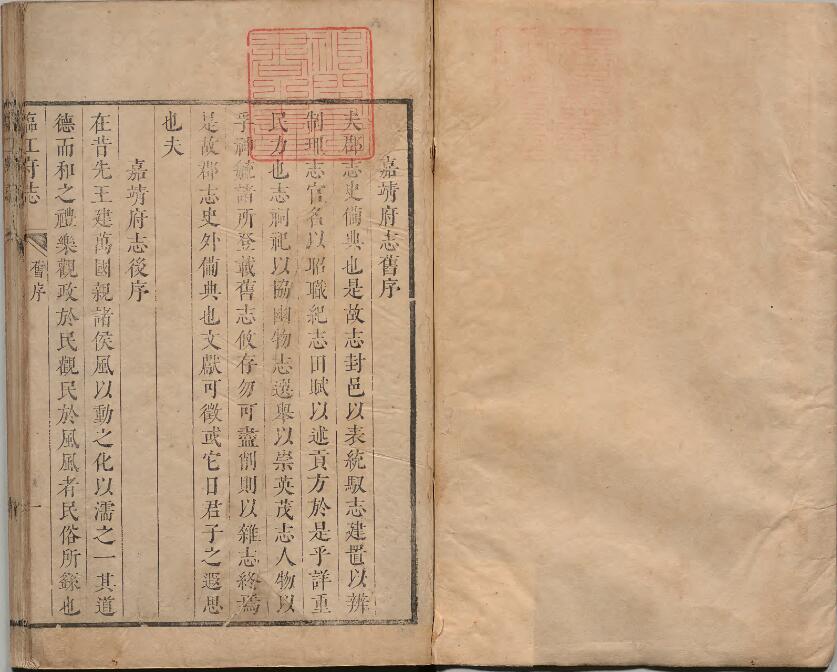 嘉靖府志舊序
夫郡志史備典也是故志封邑以表統馭志建置以辨
制理志官名以昭職紀志田賦以述貢方於是乎詳重
民力也志祠祀以協幽物志選舉以崇英茂志人物以
乎神毓諸所登載舊志攸存勿可盡削則以雜志終焉
是故郡志史外備典也文獻可徵或它日君子之遐思
也夫
嘉靖府志後序
在昔先王建萬國親諸侯風以動之化以濡之一其道
德而和之禮樂觀政於民觀民於風風者民俗所繇也
臨江府志
舊序
一